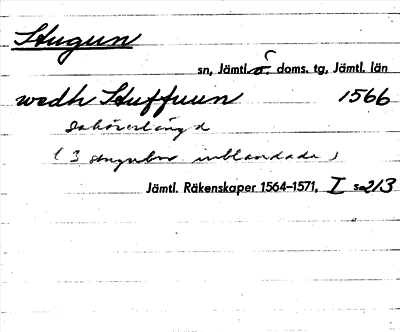 Stugun
sn, Jämtl. ö. doms. tg, Jämtl. län
wedh Stuffuun 1566
Sakörerlängd
( 3 stugubor inblandade )
Jämtl. Räkenskaper 1564–1571, I s 213